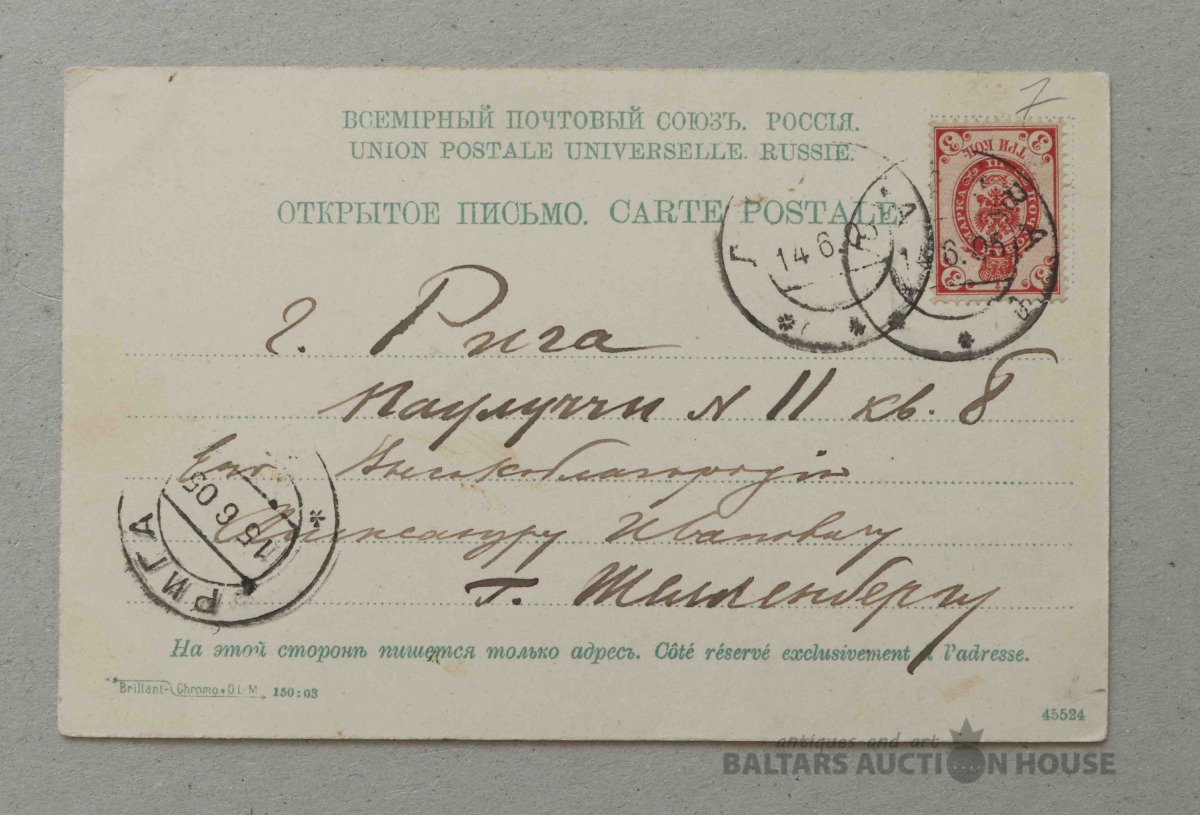 7
ВСЕМІРНЫЙ ПОЧТОВЫЙ СОЮЗЪ. РОССІЯ.
UNION POSTALE UNIVERSELLE. RUSSIE.
ОТКРЫТОЕ ПИСЬМО. CARTE POSTALE
3 ТРИ КОП. 3
ПОЧ МАРКА
3 3
14 6.
6.05
г. Рига
Паулуччи N 11 кв. 8
Его Высокоблагородію
Александру Ивановичу
г. Шелленбергу
РИГА
15 6 05
На этой сторонѣ пишется только адресъ. Côté réservé exclusivement à l'adresse.
Brillant-Chromo • O. L. M. 150:03
45524
antiques and art
BALTARS AUCTION HOUSE